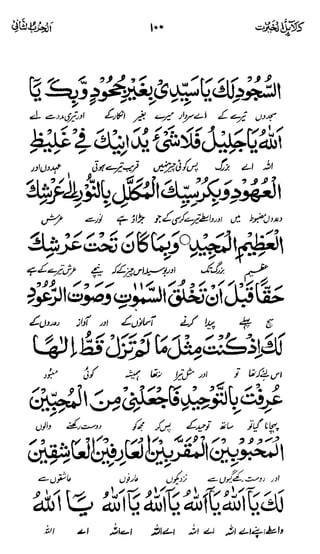 دلائل الخيرات ١٠٠ الحزب الثاني
السُّجُودُ لَكَ يَا سَيِّدِي بِغَيْرِ جُحُودٍ وَّبِكَ يَآ
سجدوں تیرے کے اے سردار میرے بغیر انکار کے اور تیری مدد سے اے
اَللهُ يَا جَلِيْلُ فَلَا شَيْءَ يُدَانِيْكَ فِي غَلِيْظِ
الله اے بزرگ پس کوئی چیز نہیں قریب تیرے ہوتی عہدوں اور
الْعُهُوْدِ وَبِكُرْسِيِّكَ الْمُكَلَّلِ بِالنُّوْرِ اِلٰى عَرْشِكَ
وعدوں مضبوط میں اور واسطے تیرے کرسی کے جو جڑاؤ ہے نور سے عرش
الْعَظِيْمِ الْمَجِيْدِ وَبِمَا كَانَ تَحْتَ عَرْشِكَ
عظیم بزرگ تک اور بوسیلہ اس چیز کے کہ نیچے عرش تیرے کے ہے
حَقًّا قَبْلَ اَنْ تَخْلُقَ السَّمٰوٰتِ وَصَوْتَ الرُّعُوْدِ
سچ پہلے پیدا کرنے آسمانوں کے اور آواز رعدوں کے
لَكَ اِذْ كُنْتَ مِثْلَ مَا لَمْ تَزَلْ قَطُّ اِلٰهًا
اس لئے کہ تھا تو اور مثل تیرا تھا ہمیشہ کوئی معبود
عُرِفْتَ بِالتَّوْحِيْدِ فَاجْعَلْنِيْ مِنَ الْمُحِبِّيْنَ
پہچانا گیا تو ساتھ توحید کے پس کر مجھ کو دوست رکھنے والوں
الْمَحْبُوْبِيْنَ الْمُقَرَّبِيْنَ الْعَارِفِيْنَ الْعَاشِقِيْنَ
اور دوست رکھے گیوں نزدیکوں عارفوں عاشقوں سے
لَكَ يَآ اَللهُ يَآ اَللهُ يَآ اَللهُ يَآ اَللهُ يَآ اَللهُ
واسطے اپنے اے الله اے الله اے الله اے الله اے الله